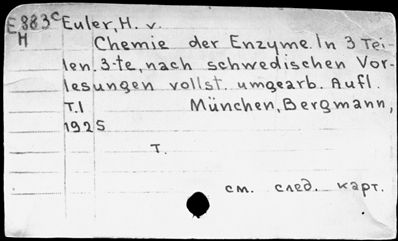 E883c Euler, H. v.
H Chemie der Enzyme. In 3 Tei-
len. 3-te, nach schwedischen Vor-
lesungen vollst. umgearb. Aufl.
T.I München, Bergmann,
1925
T.
см. след. карт.